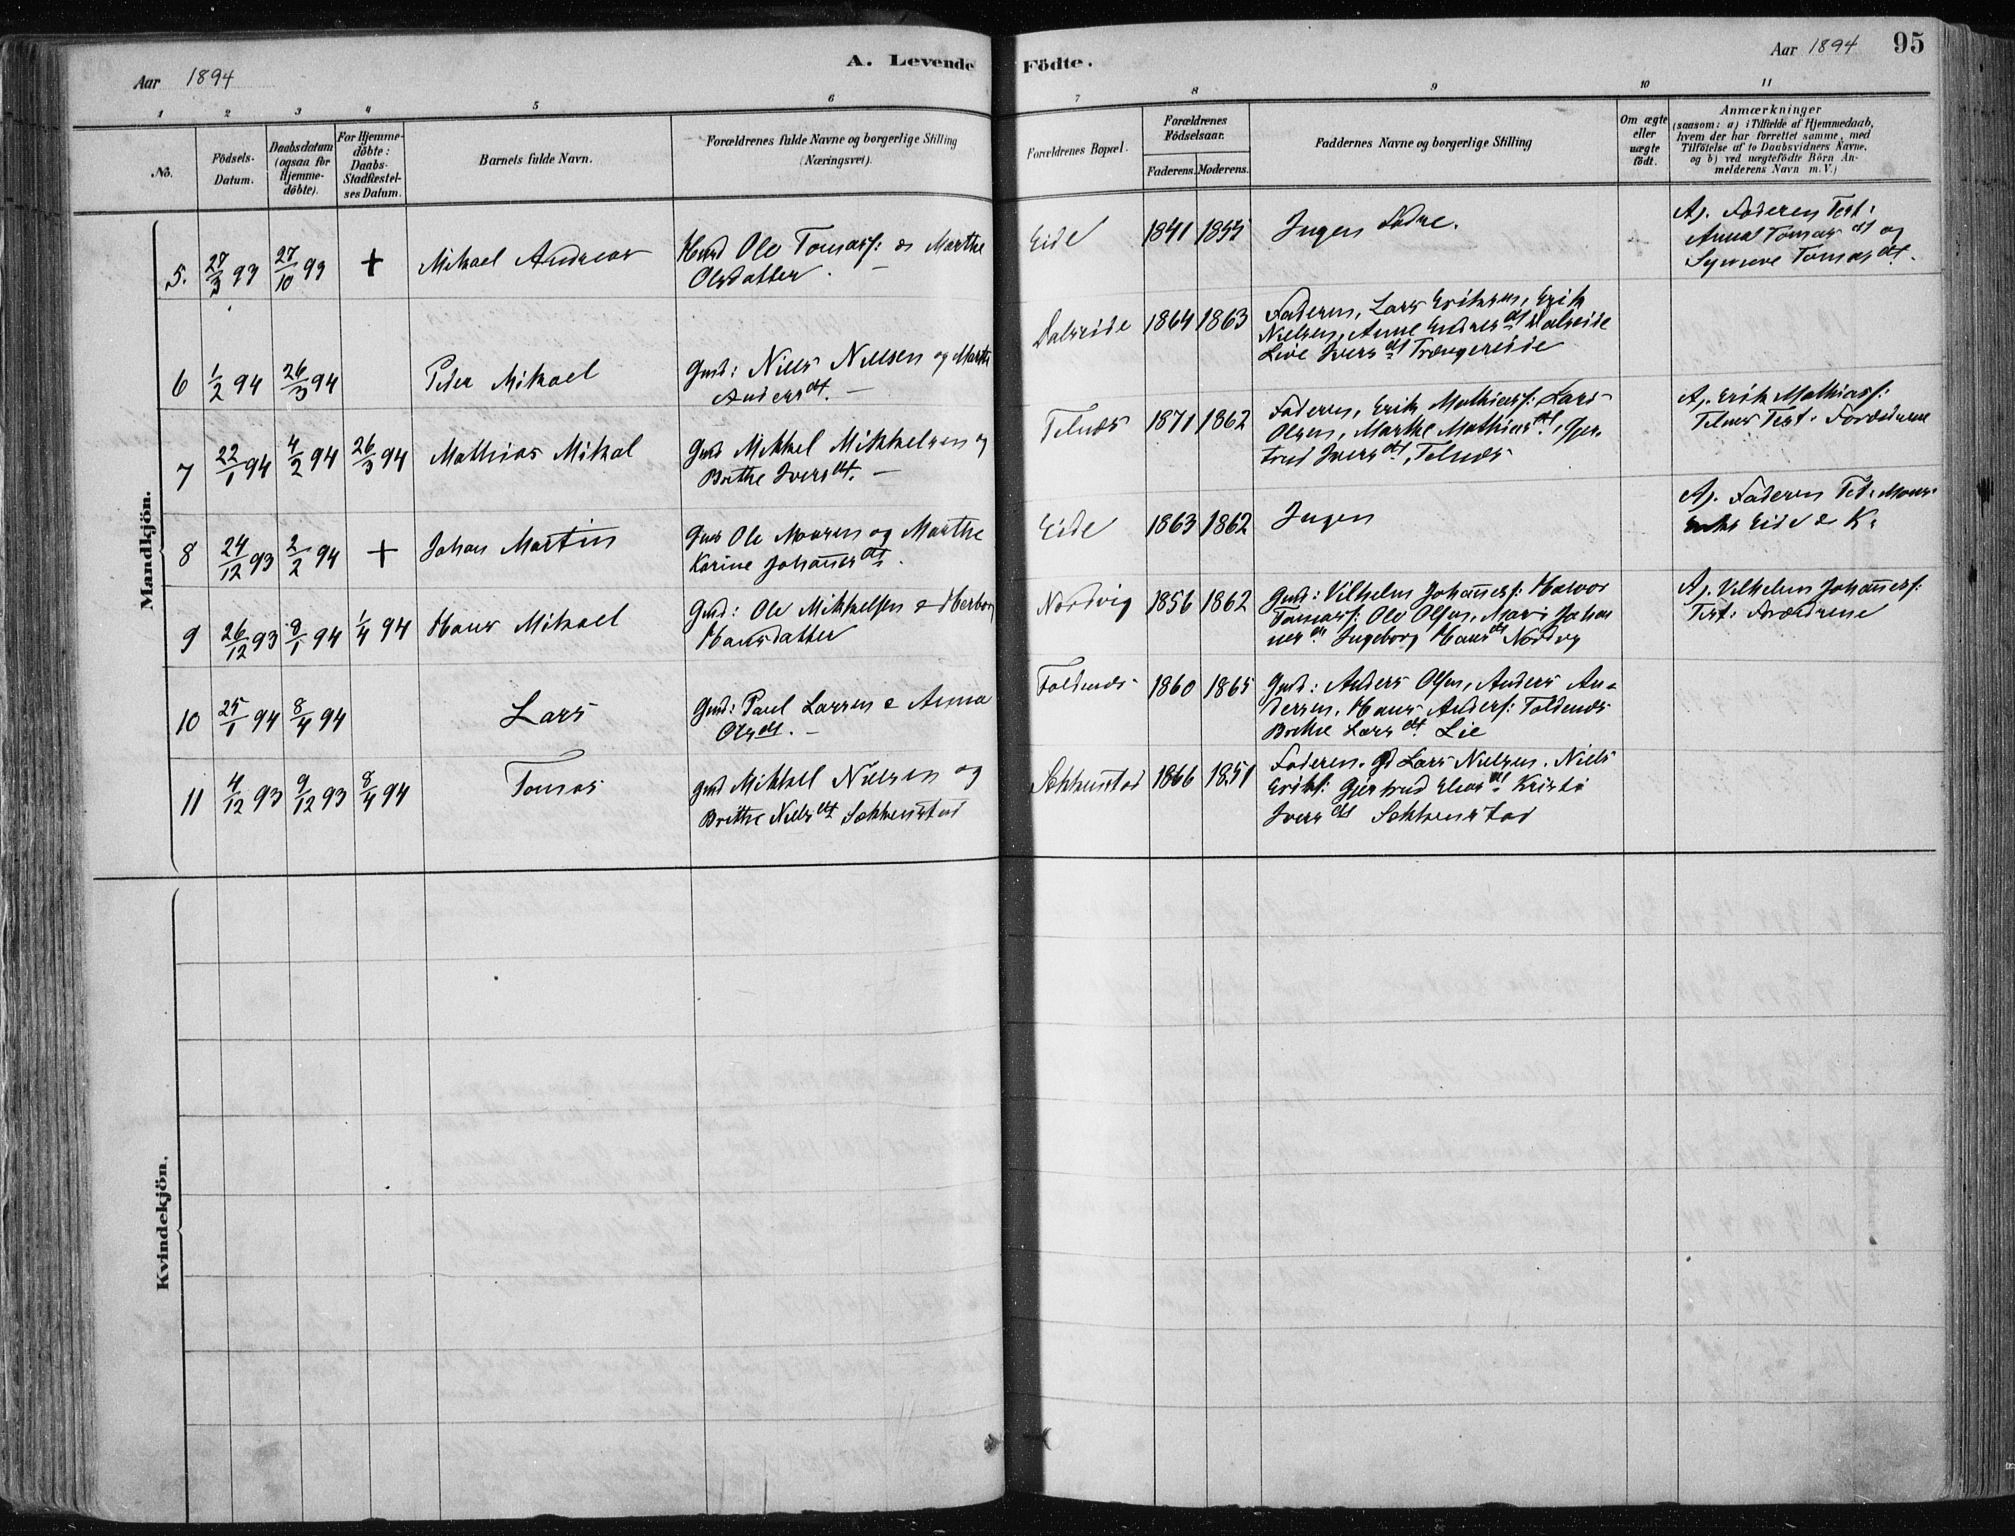 Aar 1894
A. Levende Födte.
Aar 1894 95
1 2 3 4 5 6 7 8 9 10 11
No.
Födsels-
Datum.
Daabsdatum
(ogsaa for
Hjemme-
döbte).
For Hjemme-
döbte:
Daabs-
Stadfæstel-
ses Datum.
Barnets fulde Navn.
Forældrenes fulde Navne og borgerlige Stilling
(Næringsvei).
Forældrenes Bopæl.
Forældrenes
Födselsaar.
Faderens. Moderens.
Faddernes Navne og borgerlige Stilling
Om ægte
eller
uægte
födt.
Anmærkninger
(saasom: a) i Tilfælde af Hjemmedaab,
hvem der har forrettet samme, med
Tilföielse af to Daabsvidners Navne,
og b) ved uægtefödte Börn An-
melderens Navn m. V.)
Mandkjön.
5. 27/3 93 27/10 93 + Mikael Andreas
Olo Tomass: & Marthe
Olsdatter. —
Eide 1841 1855 Ingen Fadre.
A). Faderen Test:
Anna Tomas dt og
Synneve Tomas dt.
6 1/2 94 26/3 94 Peder Mikael
Gmd: Niels Nielsen og Marthe
Anders dt. —
Dalseide 1864 1863 Faderen, Lars Eriksen, Erik
Nielsen, Anne Endres dt Dalseide
Live Ivers dt Trængereide
7 22/1 94 4/2 94 26/3 94 Mathias Mikal
Gmd Mikkel Mikkelsen og
Brithe Ivers dt. —
Telnæs 1871 1862 Faderen, Erik Mathiass: Lars
Olsen, Marthe Mathias dt, Gjer-
trud Ivers dt, Telnæs
A). Erik Mathiass:
Telnes Test: Forældrene
8 24/12 93 2/2 94 + Johan Martin
Ole Monsen og Marthe
Karine Johannes dt.
Eide 1863 1862 Ingen
A). Faderen Test: Mons
Eide & K:
9 26/12 93 8/1 94 1/4 94 Hans Mikael
Gmd: Ole Mikkelsen & Herborg
Hansdatter
Nordvig 1856 1862 Gmd: Vilhelm Johanness: Halvor
Tomass: Ole Olsen, Mari Johan
nes dt Ingeborg Hans dt Nordvig
A). Vilhelm Johanness:
Test: Forældrene
10 25/1 94 8/4 94 Lars
Gmd: Paul Larsen & Anna
Ols dt. —
Foldnæs 1860 1865 Gmd: Anders Olsen, Anders An-
dersen, Hans Anders: Foldnæs
Brithe Lars dt Lie
11 4/12 93 9/12 93 8/4 94 Tomas
Gmd Mikkel Nielsen og
Brithe Niels dt Sekkenstad
Sekkenstad 1866 1851 Faderen. Lars Nielsen. Niels
Eriks: Gjertrud Elias dt Kristi
Ivers dt Sekkenstad
Kvindekjön.